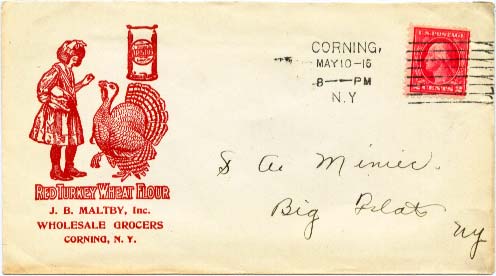 CORNING,
MAY 10-16
8 — PM
N.Y
U.S. POSTAGE
RED TURKEY WHEAT FLOUR
J. B. MALTBY, Inc.
WHOLESALE GROCERS
CORNING, N. Y.
S A. Minier.
Big Flats
Ny